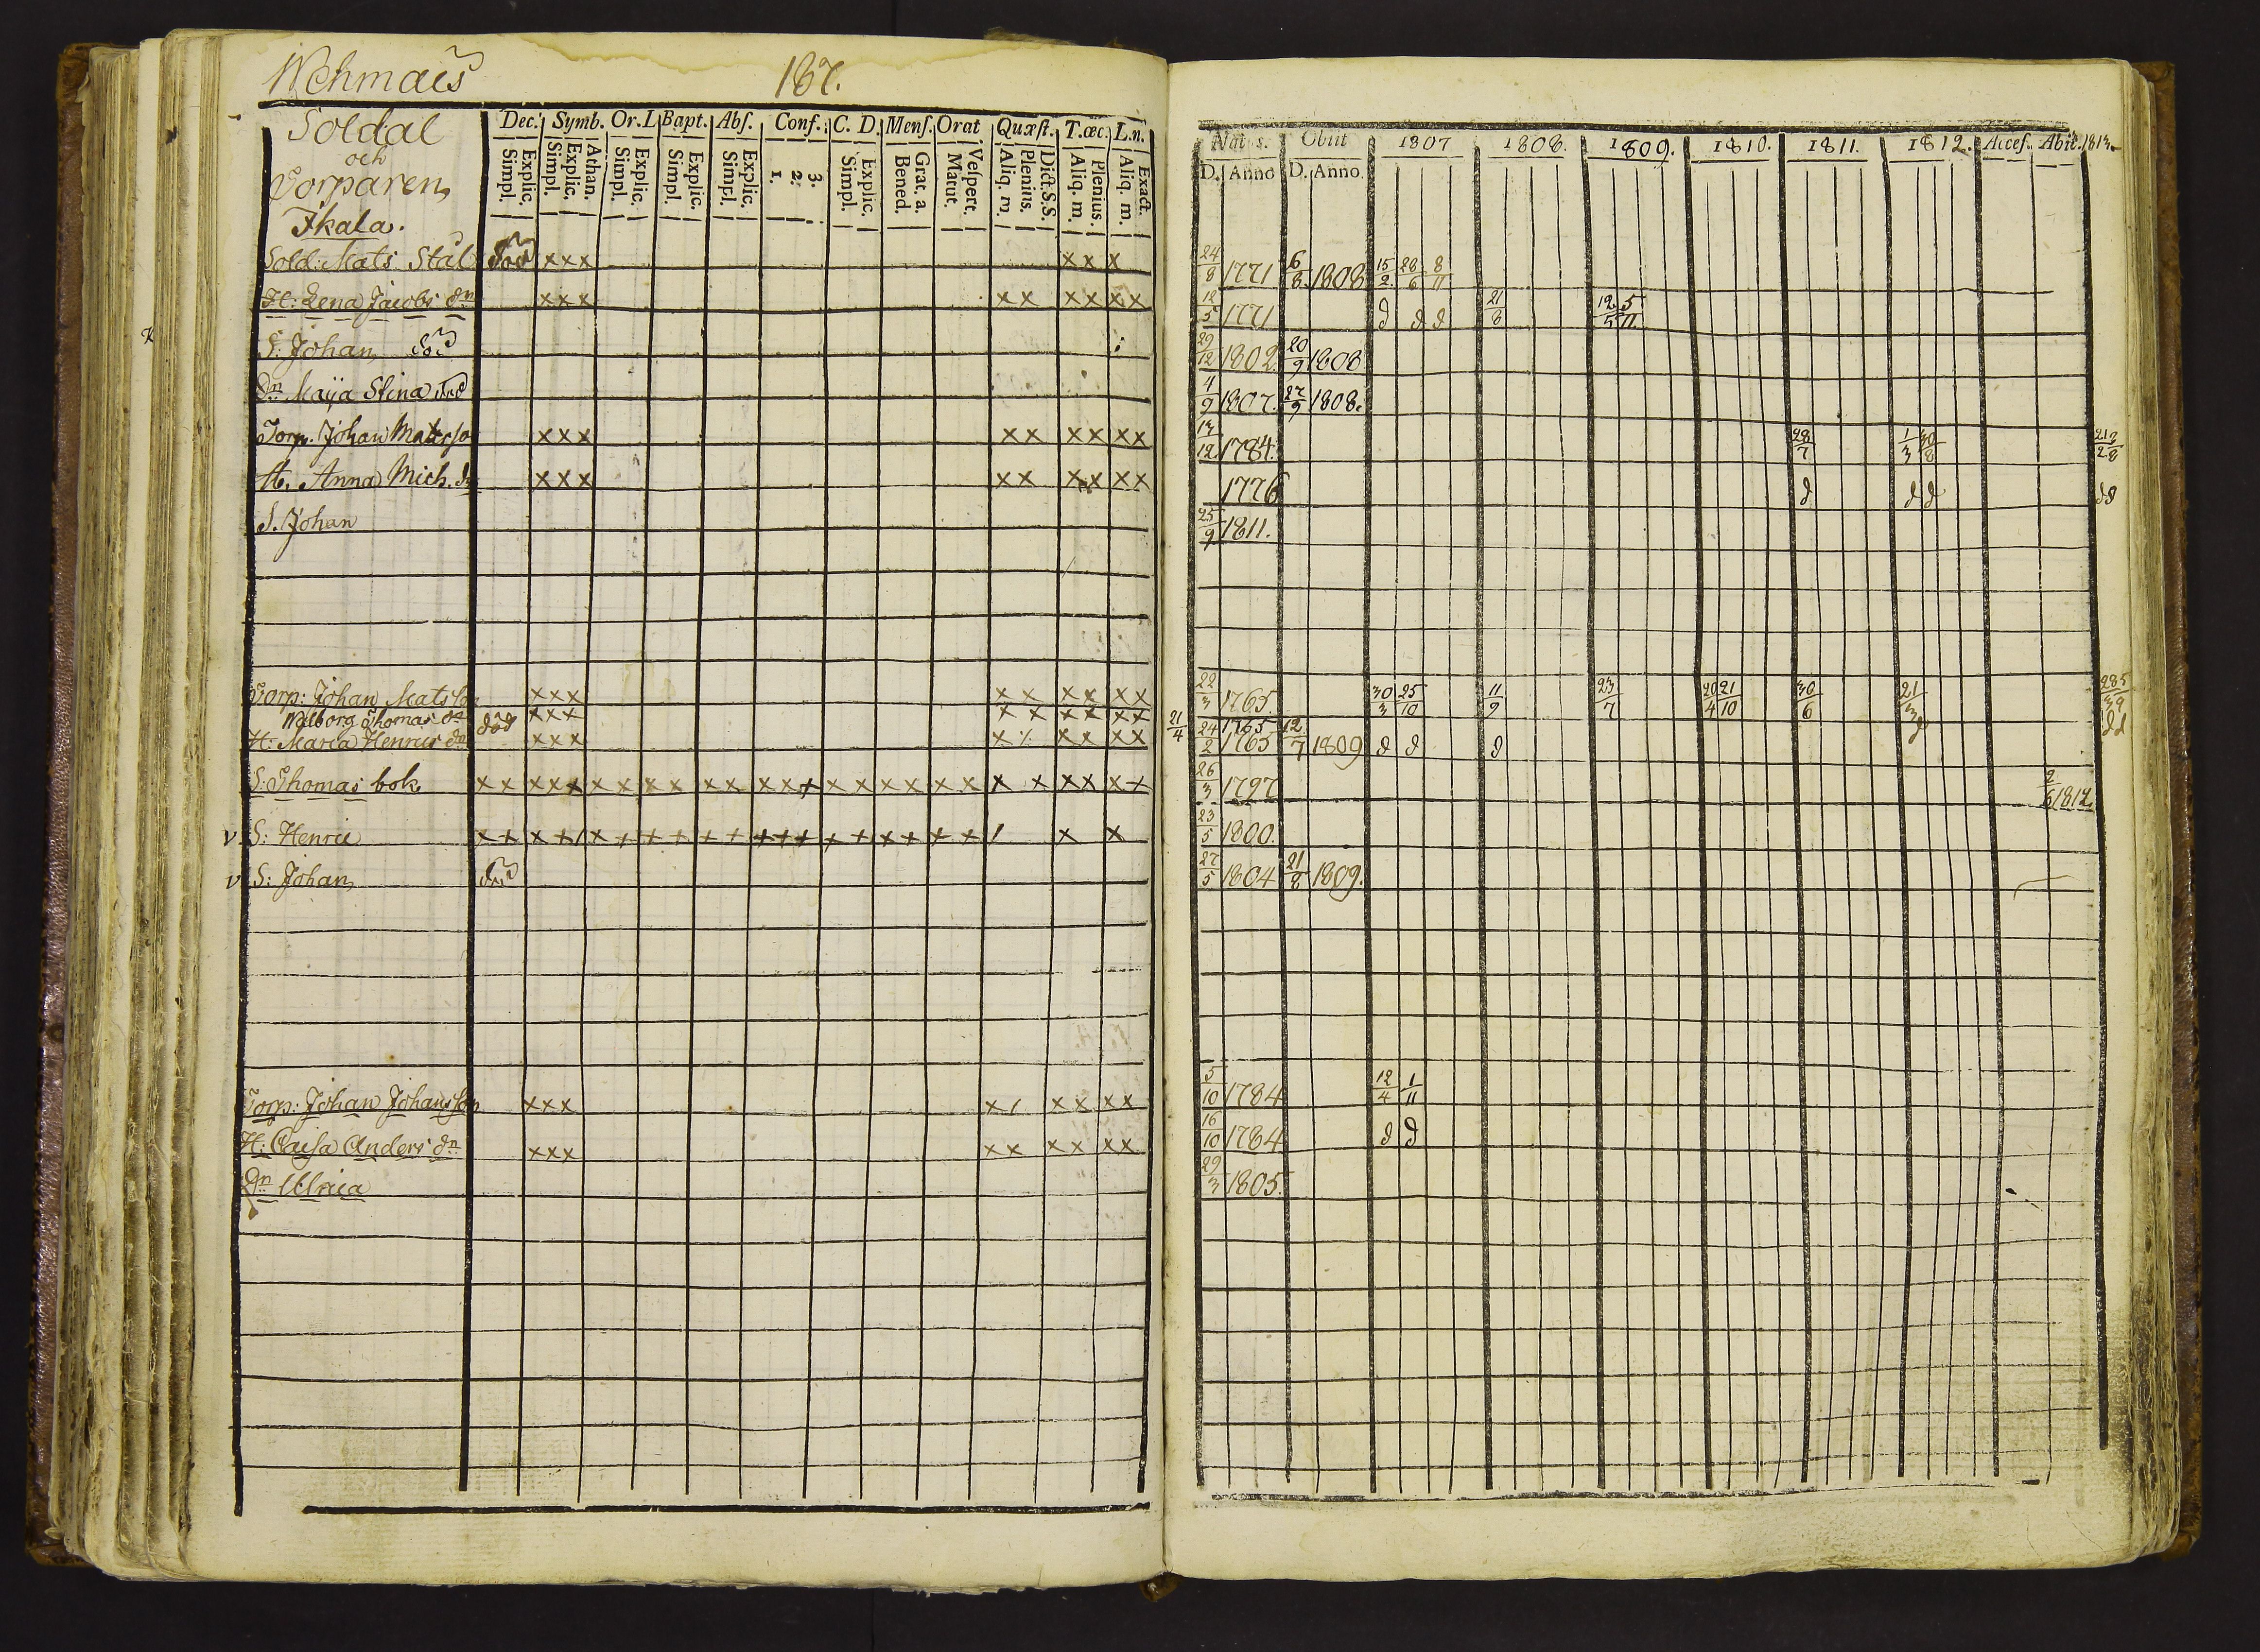 Wehmais 187.
Soldat
och
Torparen
Ikala.
Dec. Symb. Or. L Bapt. Abſ. Conf. C. D. Menſ. Orat Quæſt. T. œc. L. n.
Explic. Simpl. Athan. Explic. Simpl. Explic. Simpl. Explic. Simpl. Explic. Simpl. 3. 2. 1. Explic. Simpl. Grat. a. Bened. Veſpert. Matut. Dict. S. S. Plenius. Aliq. m. Plenius. Aliq. m. Exact. Aliq. m.
Natus. Obiit 1807 1808. 1809. 1810. 1811. 1812. Acceſ. Abit. 1813.
D. Anno D. Anno.
Sold: Mats Stål död xxx xx x 24/8 1771 6/8 1808 15/2 28/6 8/11
H: Lena Jacobs dn xxx xx xx xx 12/5 1771 d d d 21/8 12/5 5/11
S: Johan död 29/12 1802 20/9 1808
Dn Maija Stina död 4/9 1807. 27/9 1808.
Torp. Johan Matsso xxx xx xx xx 13/12 1784. 28/7 1/3 30/8
H. Anna Mich. dr xxx xx xx xx 1776 d d d dd
S. Johan 25/9 1811.
Torp: Johan Matsson xxx xx xx xx 22/3 1765 30/3 25/10 11/9 23/7 20/4 21/10 30/6 21/3
Walborg Thomas dr xxx xx xx xx 21/4 1765
H: Maria Henrics dn död xxx x / xx xx 24/2 1765 12/7 1809 d d d
S: Thomas bok xx xxx xx xx xx xxx xx xx xx x x xx xx 26/3 1797 2/6 1812
v S: Henric xx xx/ xx xx xx xxx xx xx xx / x x 23/5 1800.
v S: Johan död 27/5 1804 21/8 1809.
Torp: Johan Johansson xxx x/ xx xx 5/10 1784 12/4 1/11
H: Caisa Anders dn xxx xx xx xx 16/10 1784 d d
Dn Ulrica 29/3 1805.